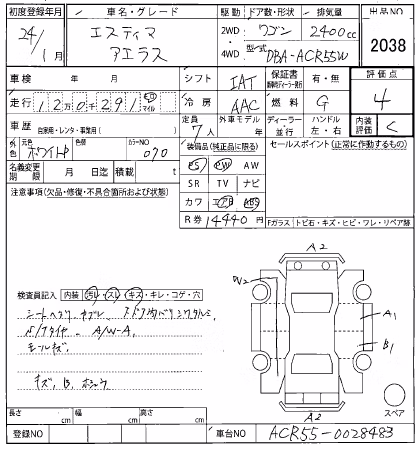 初度登録年月 車名・グレード 駆動 ドア数・形状 排気量 出品NO
24/1月 エスティマ アエラス 2WD 4WD ワゴン 2400cc 2038
型式 DBA-ACR55W
車検 年 月 シフト IAT 保証書 有・無 評価点 4
走行 120291 km マイル 冷房 AAC 燃料 G
車歴 自家用・レンタ・事業用( ) 定員 7人 外車モデル 年 ディーラー 並行 ハンドル 左・右 内装評価 C
外色 元色 ホワイトP 色替 カラーNO 070 装備品(純正品に限る) セールスポイント(正常に作動するもの)
PS PW AW
名義変更期限 月 日迄 積載 t SR TV ナビ
注意事項(欠品・修復・不具合箇所および状態) カワ エアB ABS
R券 14440円 Fガラス トビ石・キズ・ヒビ・ワレ・リペア跡
A2
W2
検査員記入 内装 汚レ・スレ・キズ・キレ・コゲ・穴
A1
B1
A/W-A
モールキズ
スペア
A2
長さ cm 幅 cm 高さ cm
登録NO 車台NO ACR55-0028483